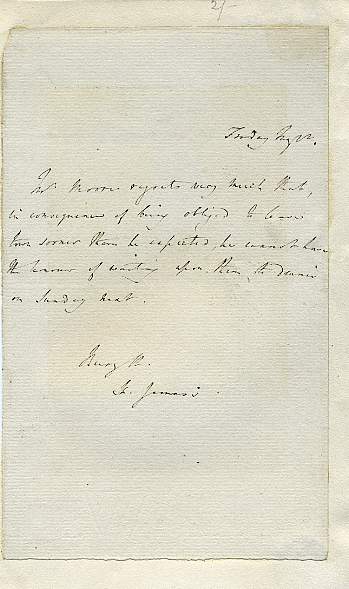 2/-
Mr Moore regrets very much that,
in consequence of being obliged to leave
town sooner than he expected, he cannot have
the honour of waiting upon them to dinner
on Sunday next.
Bury St.
St. James's.